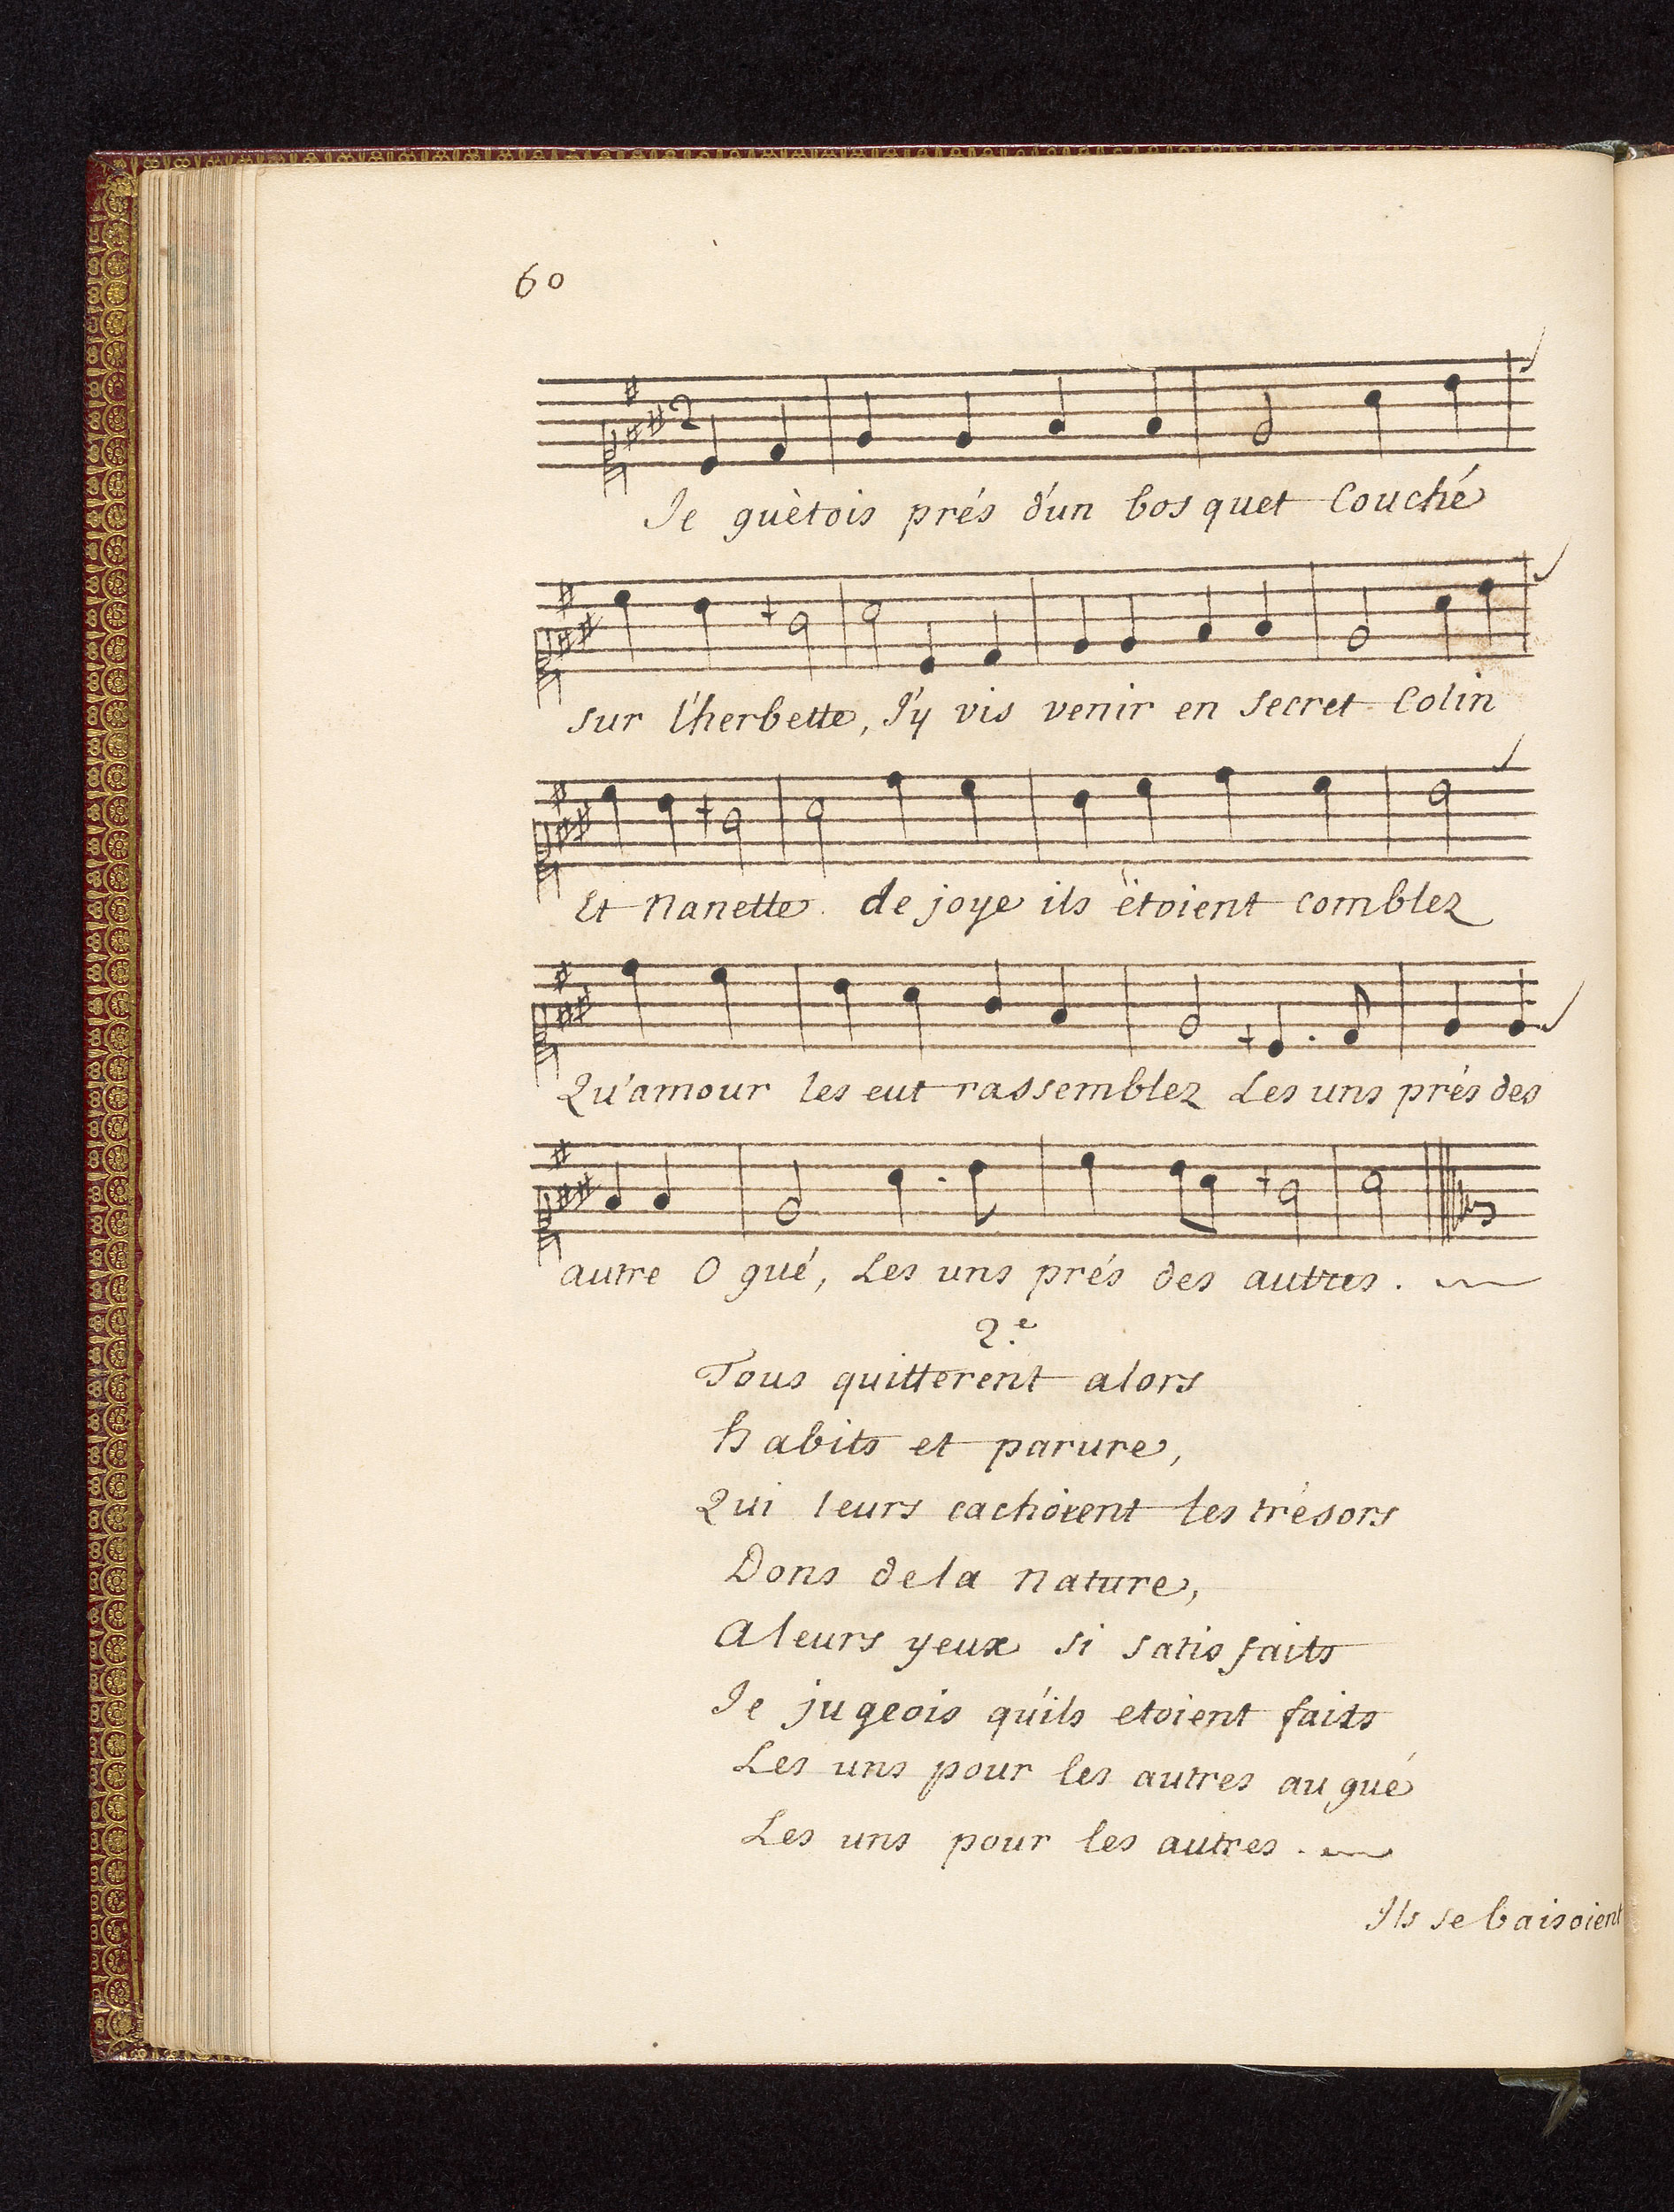 60
2
Je guètois prés d'un bosquet Couché
sur l'herbette, J'y vis venir en secret Colin
Et Nanette. de joye ils ëtoient comblez
Qu'amour les eut rassemblez Les uns prés des
autre O gué, Les uns prés des autres.
2.e
Tous quitterent alors
habits et parure,
Qui leurs cachoient les trésors
Dons dela nature,
A leurs yeux si satisfaits
Je jugeois qu'ils etoient faits
Les uns pour les autres au gué
Les uns pour les autres.
Ils se baisoient